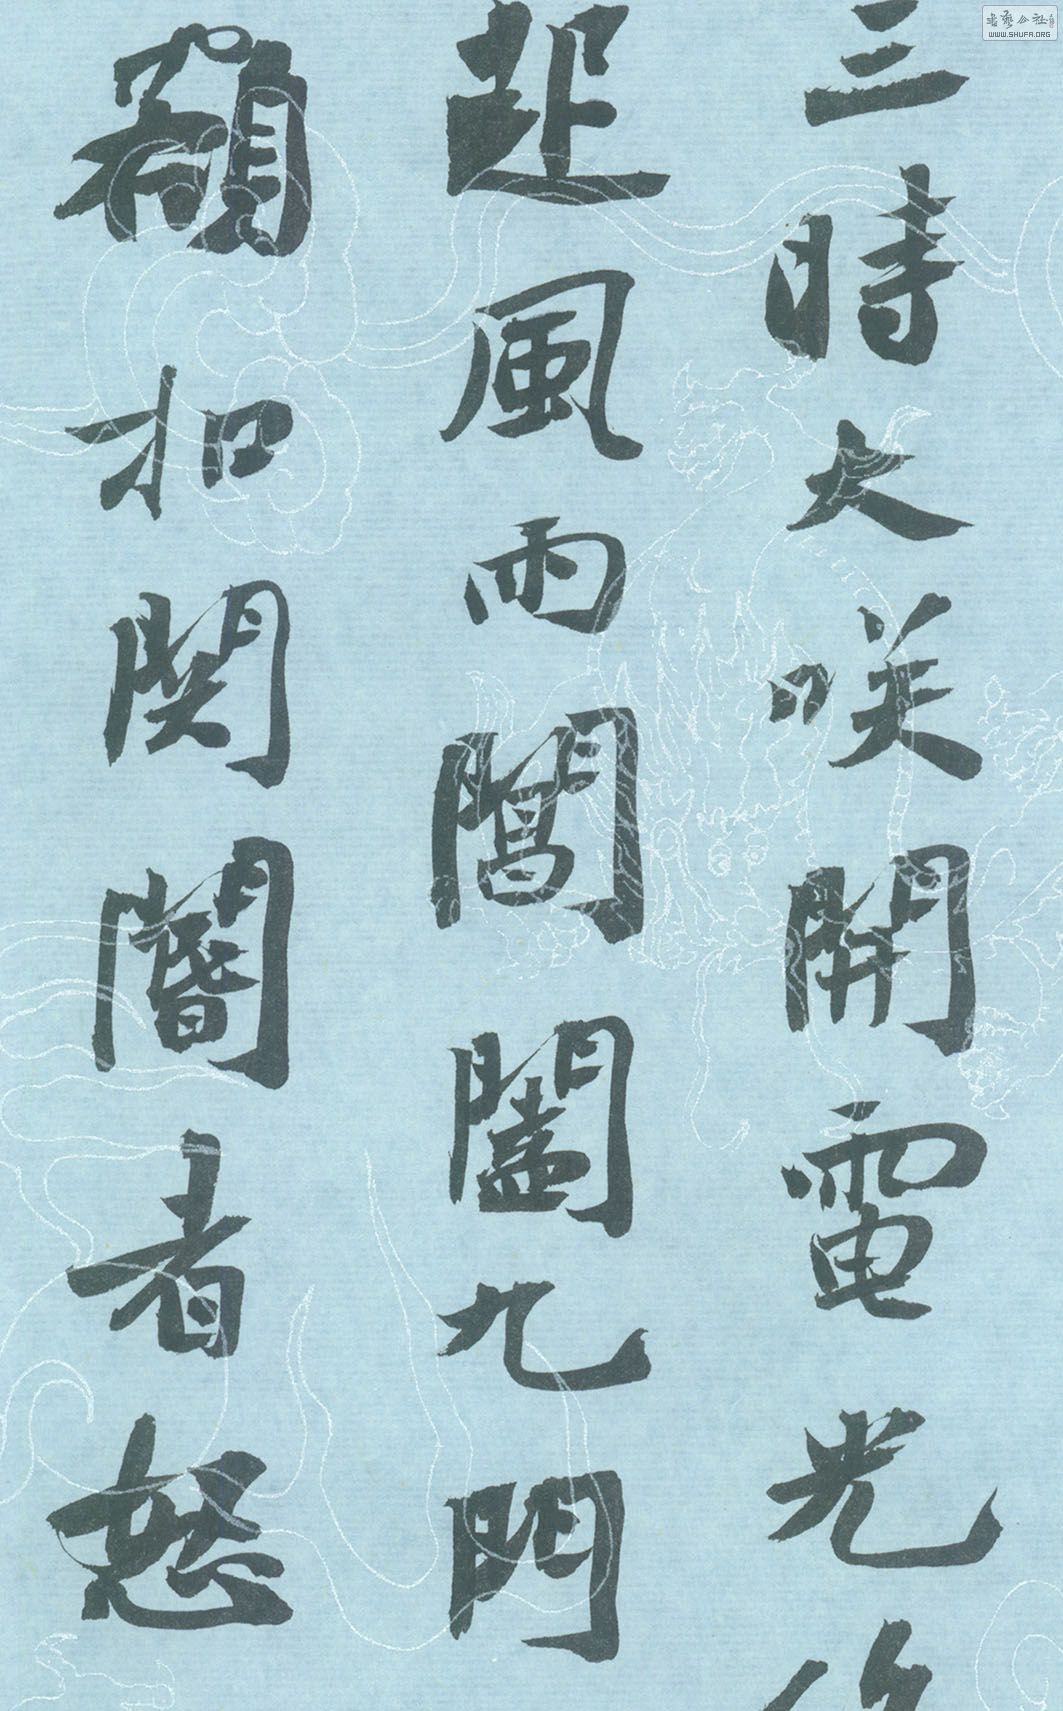 三時大咲開電光
起風雨閶闔九門
額扣関閽者怒
書藝公社
WWW.SHUFA.ORG